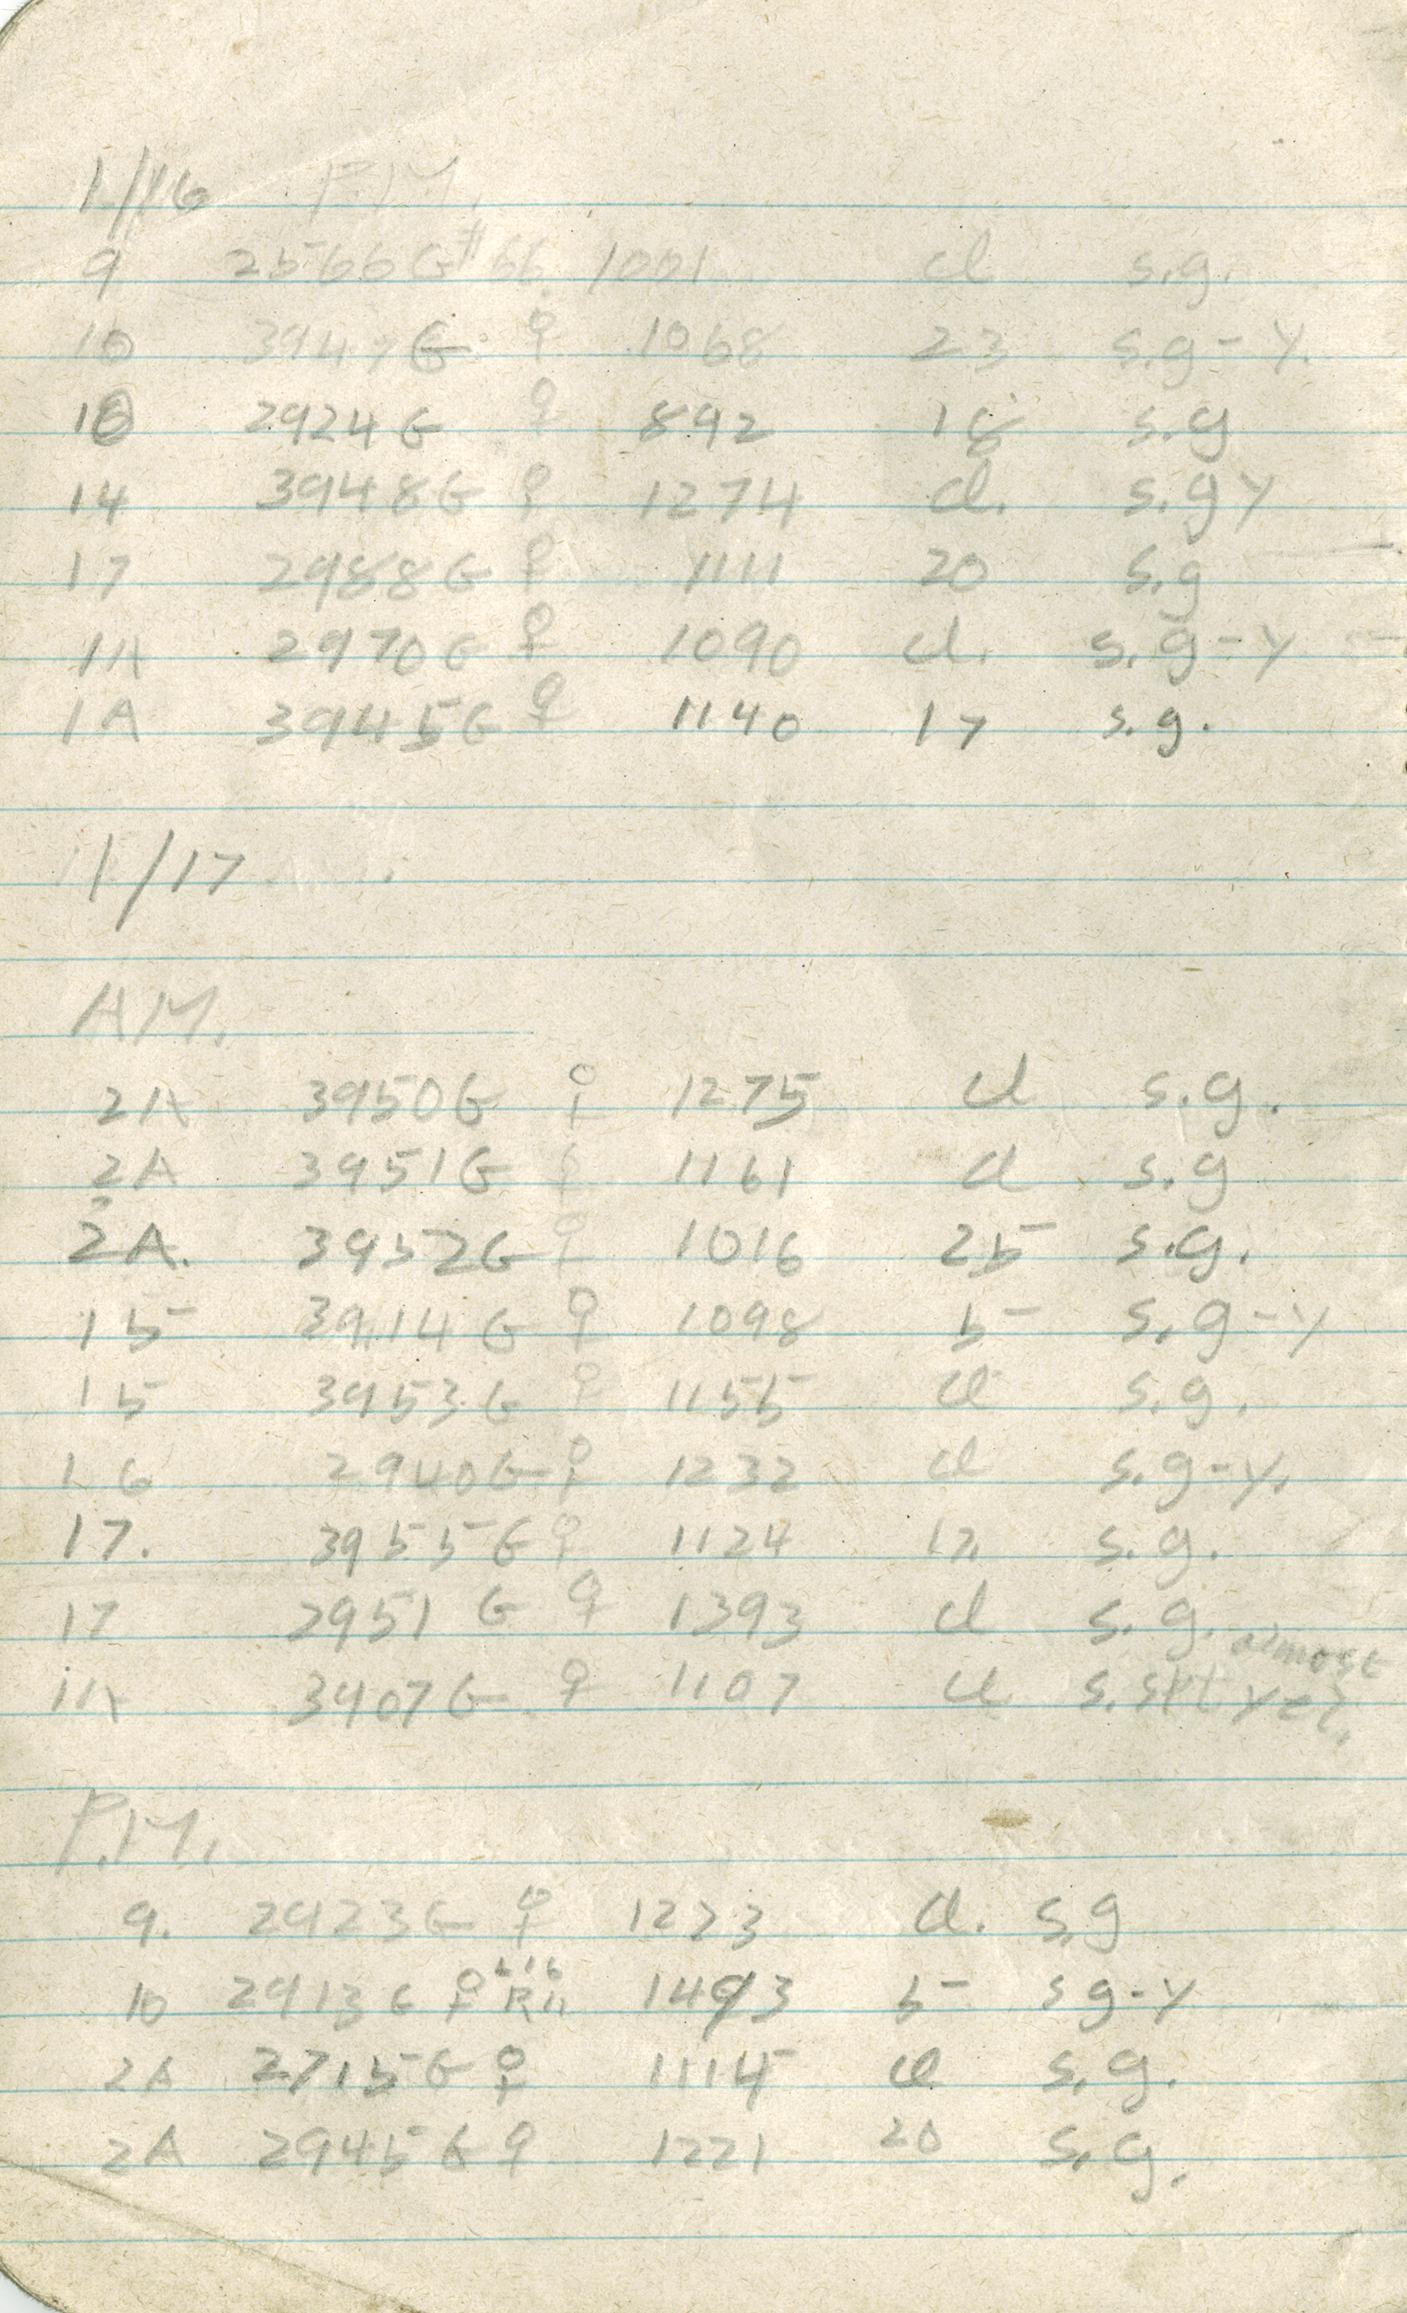 1/16 P.M.
9 2566G #66 1001 cl s.g.
10 3947G ♀ 1068 23 s.g-y.
10 2924G ♀ 892 18 s.g
14 3948G ♀ 1274 cl. s.gy
17 2988G ♀ 1111 20 s.g
1A 2970G ♀ 1090 cl. s.g-y
1A 3945G ♀ 1140 17 s.g.
1/17
AM.
2A 3950G ♀ 1275 cl s.g.
2A 3951G ♀ 1161 cl s.g
2A. 3952G ♀ 1016 25 s.g.
15 3914G ♀ 1098 5 s.g-y
15 3953G ♀ 1155 cl s.g.
16 2940G ♀ 1232 cl s.g-y.
17. 3955G ♀ 1124 17. s.g.
17 2951G ♀ 1393 cl s.g.
1A 3907G ♀ 1107 cl s.slt almost yel.
P.M.
9. 2923G ♀ 1223 cl. s.g
10 2913G ♀ 1493 5 sg-y
2A 2715G ♀ 1114 cl s.g.
2A 2945G ♀ 1221 20 s.g.